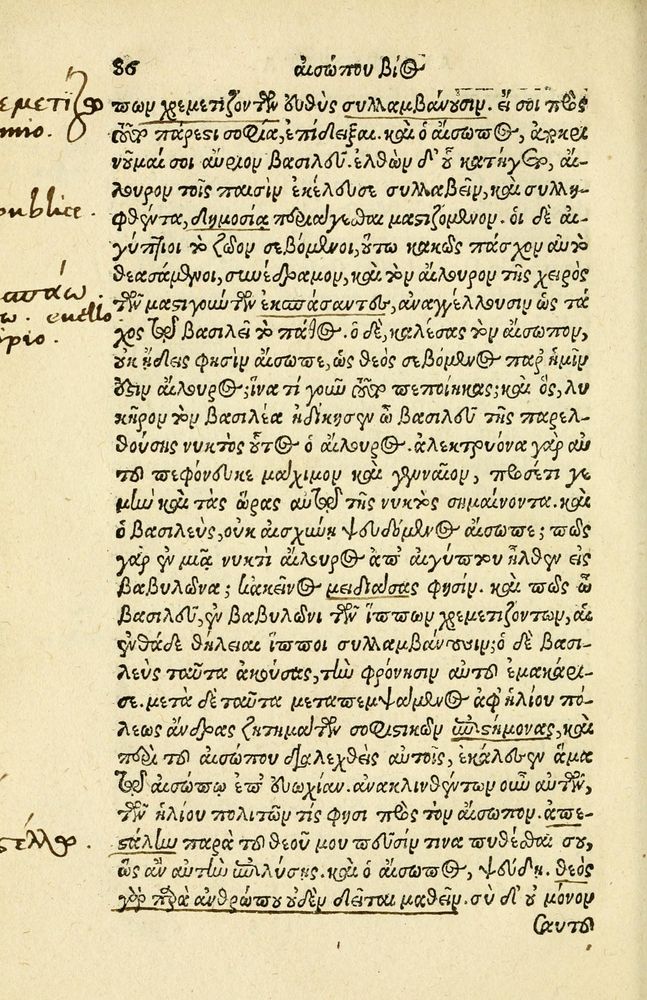 86 αἰσώπου βίος
πων χρεμετιζόντων εὐθὺς συλλαμβάνουσιν. εἴ σοι πρὸς
τοῦτο πάρεστι σοφία, ἐπίδειξαι. καὶ ὁ αἴσωπος, ἀποκρι
νοῦμαί σοι αὔριον βασιλεῦ. ἐλθὼν δ' οὗ κατήγετο, αἴ-
λουρον τοῖς παισὶν ἐκέλευσε συλλαβεῖν, καὶ συλλη-
φθέντα, δημοσίᾳ περιάγεσθαι μαστιζόμενον. οἱ δὲ αἰ-
γύπτιοι τὸ ζῶον σεβόμενοι, οὕτω κακῶς πάσχον αὐτὸ
θεασάμενοι, συνέδραμον, καὶ τὸν αἴλουρον τῆς χειρὸς
τῶν μαστιγούντων ἐκσπάσαντες, ἀναγγέλλουσιν ὡς τά
χος τῷ βασιλεῖ τὸ πάθος. ὁ δὲ, καλέσας τὸν αἴσωπον,
οὐκ ᾔδεις φησὶν αἴσωπε, ὡς θεὸς σεβόμενος παρ' ἡμῖν
ἐστὶν αἴλουρος; ἵνα τί γοῦν τοῦτο πεποίηκας; καὶ ὃς, λυ
κῆρον τὸν βασιλέα ἠδίκησεν ὦ βασιλεῦ τῆς παρελ-
θούσης νυκτὸς οὗτος ὁ αἴλουρος. ἀλεκτρυόνα γὰρ αὐ
τοῦ πεφόνευκε μάχιμον καὶ γενναῖον, προσέτι γε
μὴν καὶ τὰς ὥρας αὐτῷ τῆς νυκτὸς σημαίνοντα. καὶ
ὁ βασιλεὺς, οὐκ αἰσχύνῃ ψευδόμενος αἴσωπε; πῶς
γὰρ ἐν μιᾷ νυκτὶ αἴλουρος ἀπ' αἰγύπτου ἦλθεν εἰς
βαβυλῶνα; κἀκεῖνος μειδιάσας φησίν. καὶ πῶς ὦ
βασιλεῦ, ἐν βαβυλῶνι τῶν ἵππων χρεμετιζόντων, αἱ
ἐνθάδε θήλειαι ἵπποι συλλαμβάνουσιν; ὁ δὲ βασι-
λεὺς ταῦτα ἀκούσας, τὴν φρόνησιν αὐτοῦ ἐμακάρι-
σε. μετὰ δὲ ταῦτα μεταπεμψάμενος ἀφ' ἡλίου πό-
λεως ἄνδρας ζητημάτων σοφιστικῶν ἐπιστήμονας, καὶ
περὶ τοῦ αἰσώπου διαλεχθεὶς αὐτοῖς, ἐκάλεσεν ἅμα
τῷ αἰσώπῳ ἐπ' εὐωχίαν. ἀνακλινθέντων οὖν αὐτῶν,
τῶν ἡλίου πολιτῶν τίς φησι πρὸς τὸν αἴσωπον. ἀπε-
στάλην παρὰ τοῦ θεοῦ μου πεῦσίν τινα πυθέσθαι σου,
ὡς ἂν αὐτὴν ἐπιλύσῃς. καὶ ὁ αἴσωπος, ψεύδῃ. θεὸς
γὰρ παρὰ ἀνθρώπου οὐδὲν δεῖται μαθεῖν. σὺ δ' οὐ μόνον
σαυτοῦ
εμετιζω
mio.
publice.
σπάω.
ω. evello.
ipio.
στέλλω.